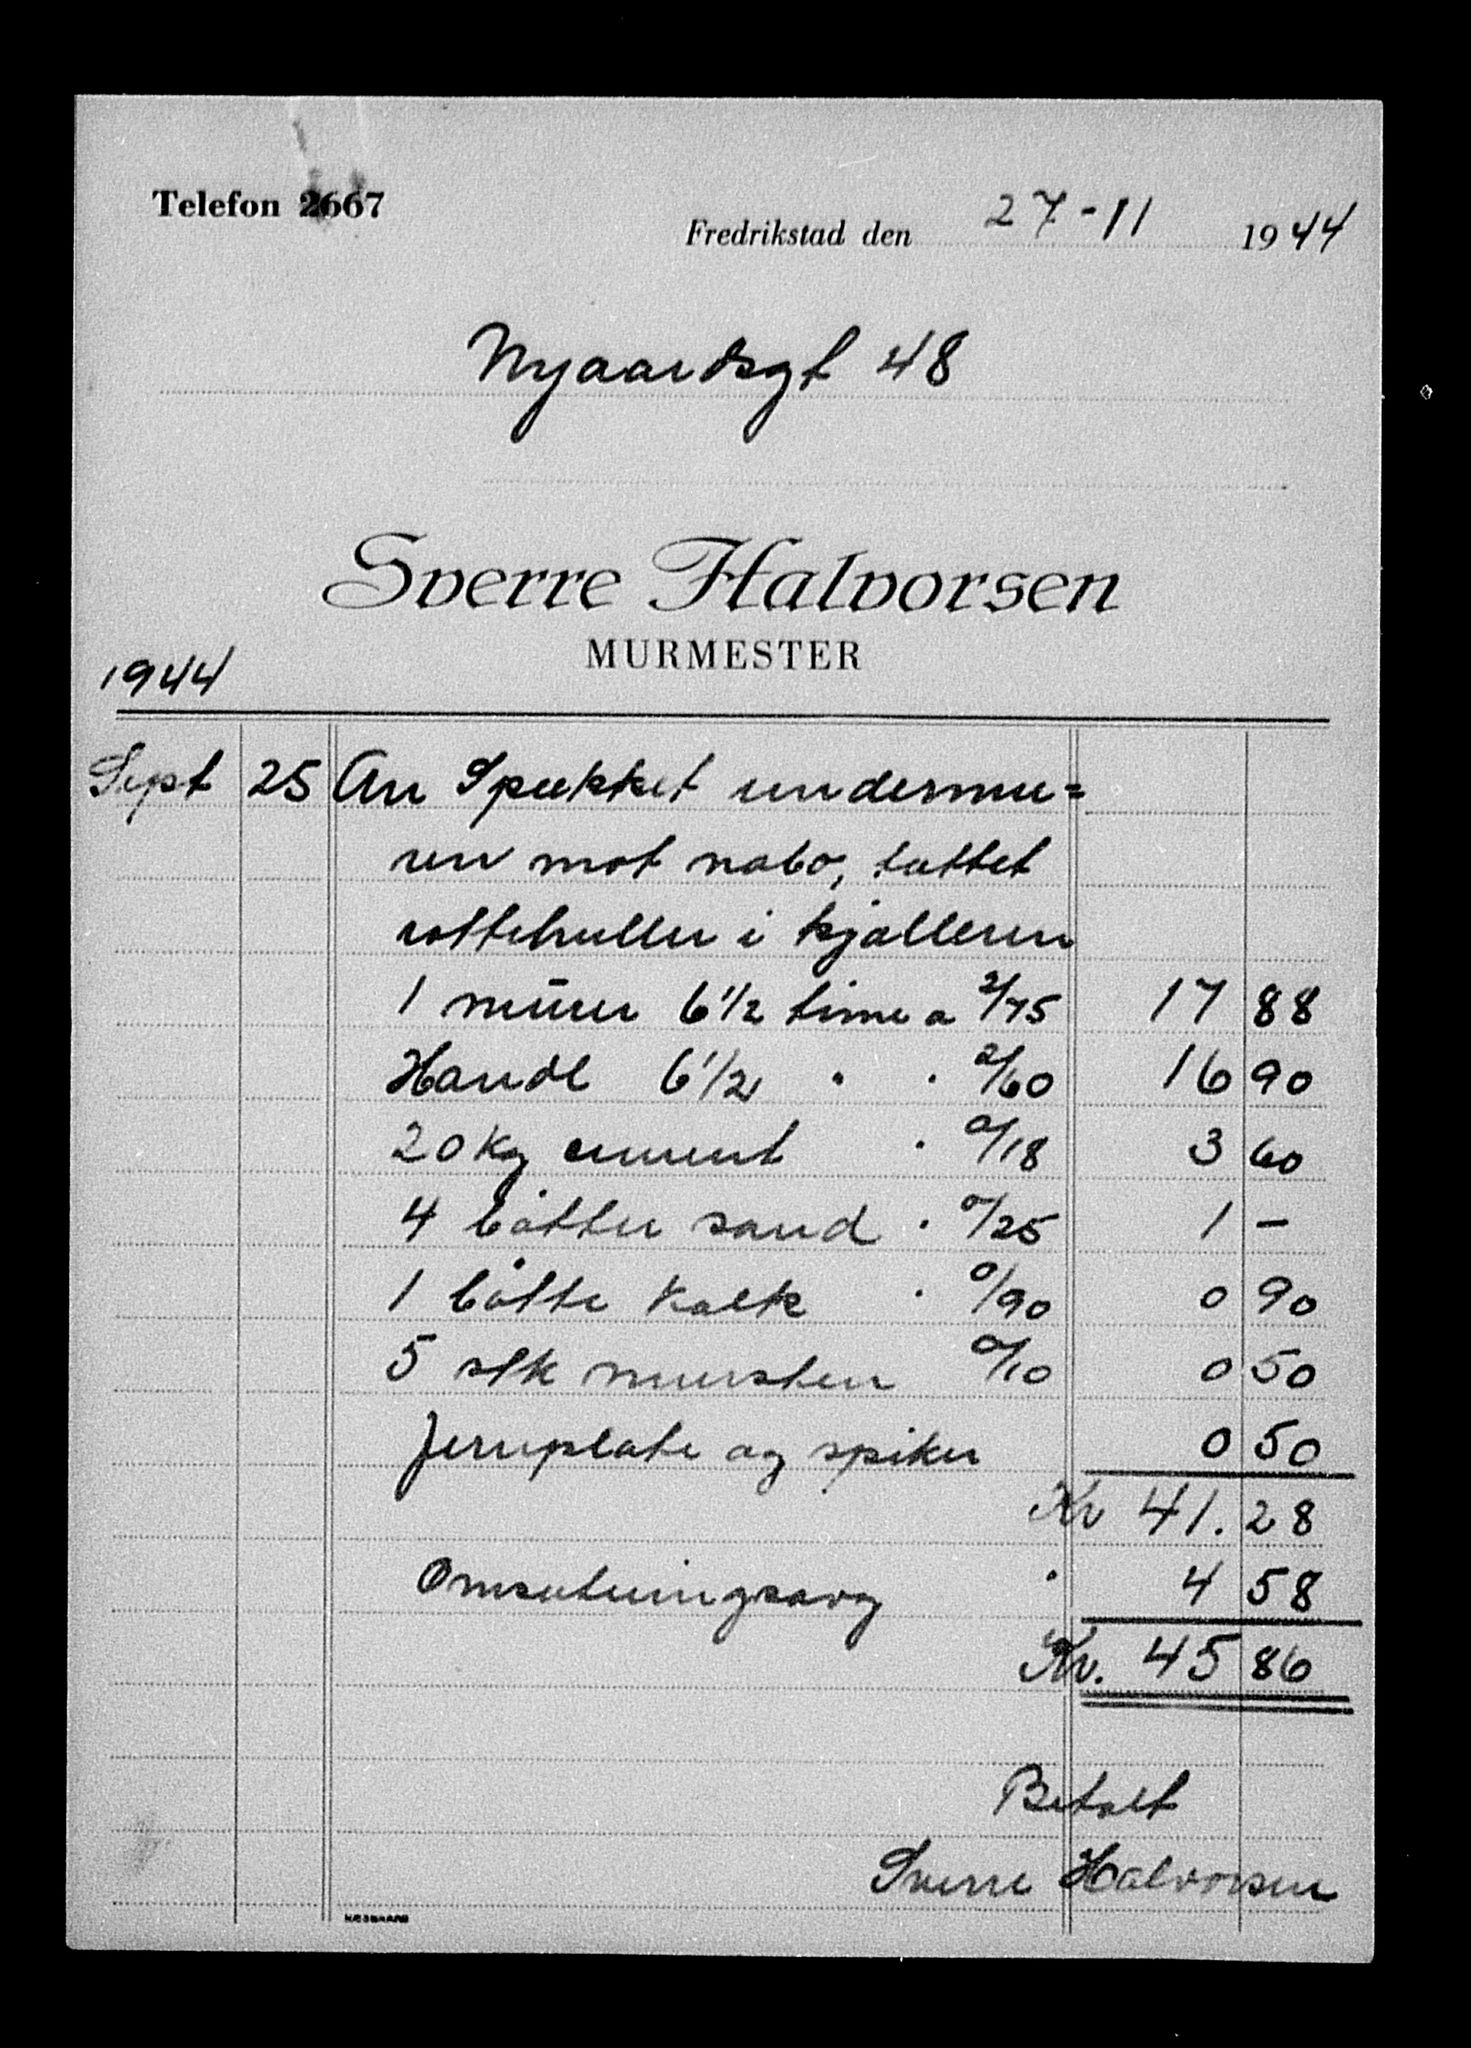 Telefon 2667
Fredrikstad den 27-11 1944
Nyaardsgt 48
Sverre Halvorsen
MURMESTER
1944
Sept 25 An Spekket undermu=
ren mot nabo, tettet
rottehuller i kjelleren
1 murer 6 1/2 time a 2/75 17 88
Handl 6 1/2 " " 2/60 16 90
20 kg cement " 0/18 3 60
4 bøtter sand " 0/25 1 -
1 bøtte kalk " 0/90 0 90
5 stk mursten 0/10 0 50
Jernplate og spiker 0 50
Kr 41.28
Omsetningsavg " 4 58
Kr. 45 86
Betalt
Sverre Halvorsen